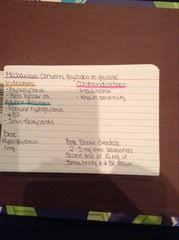 Mechanism: Converts glycogen to glucose
Indications:
- Hypoglycemia
- Beta Blocker OD
Contraindications
- Insulinoma
- Known sensitivity
Adverse Reactions
- Rebound hypoglycemia
- ↓ BP
- Sinus Tachycardia
Dose:
Hypoglycemia:
1 mg
Beta Blocker Overdose
2-5 mg over
Second dose of 10 mg IV
Sinus brady & ↓ BP